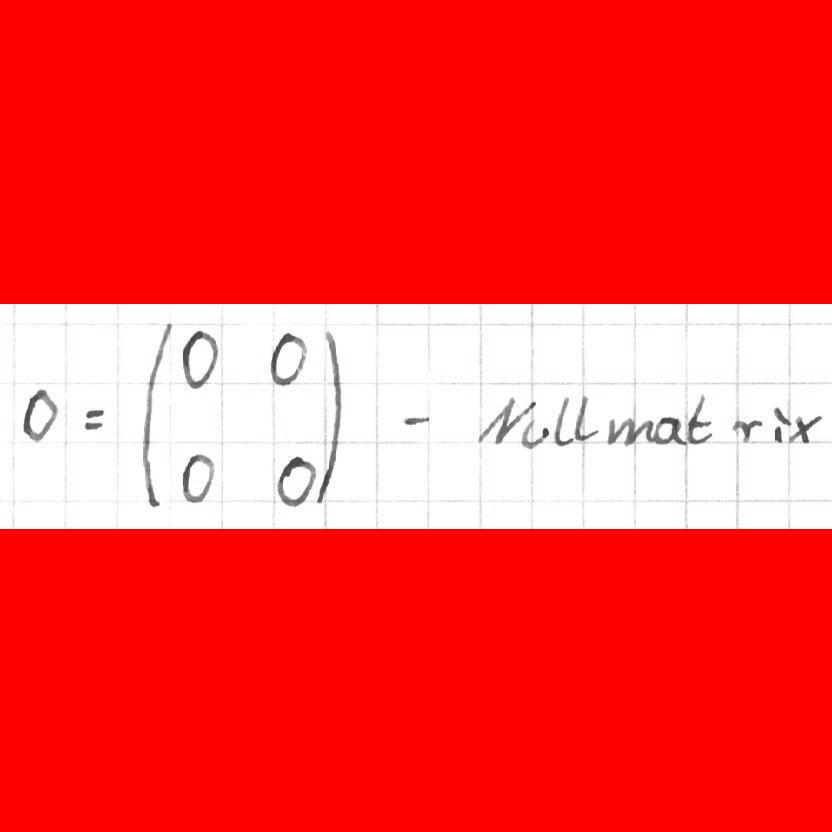 0 = (0 0
0 0) - Nullmatrix